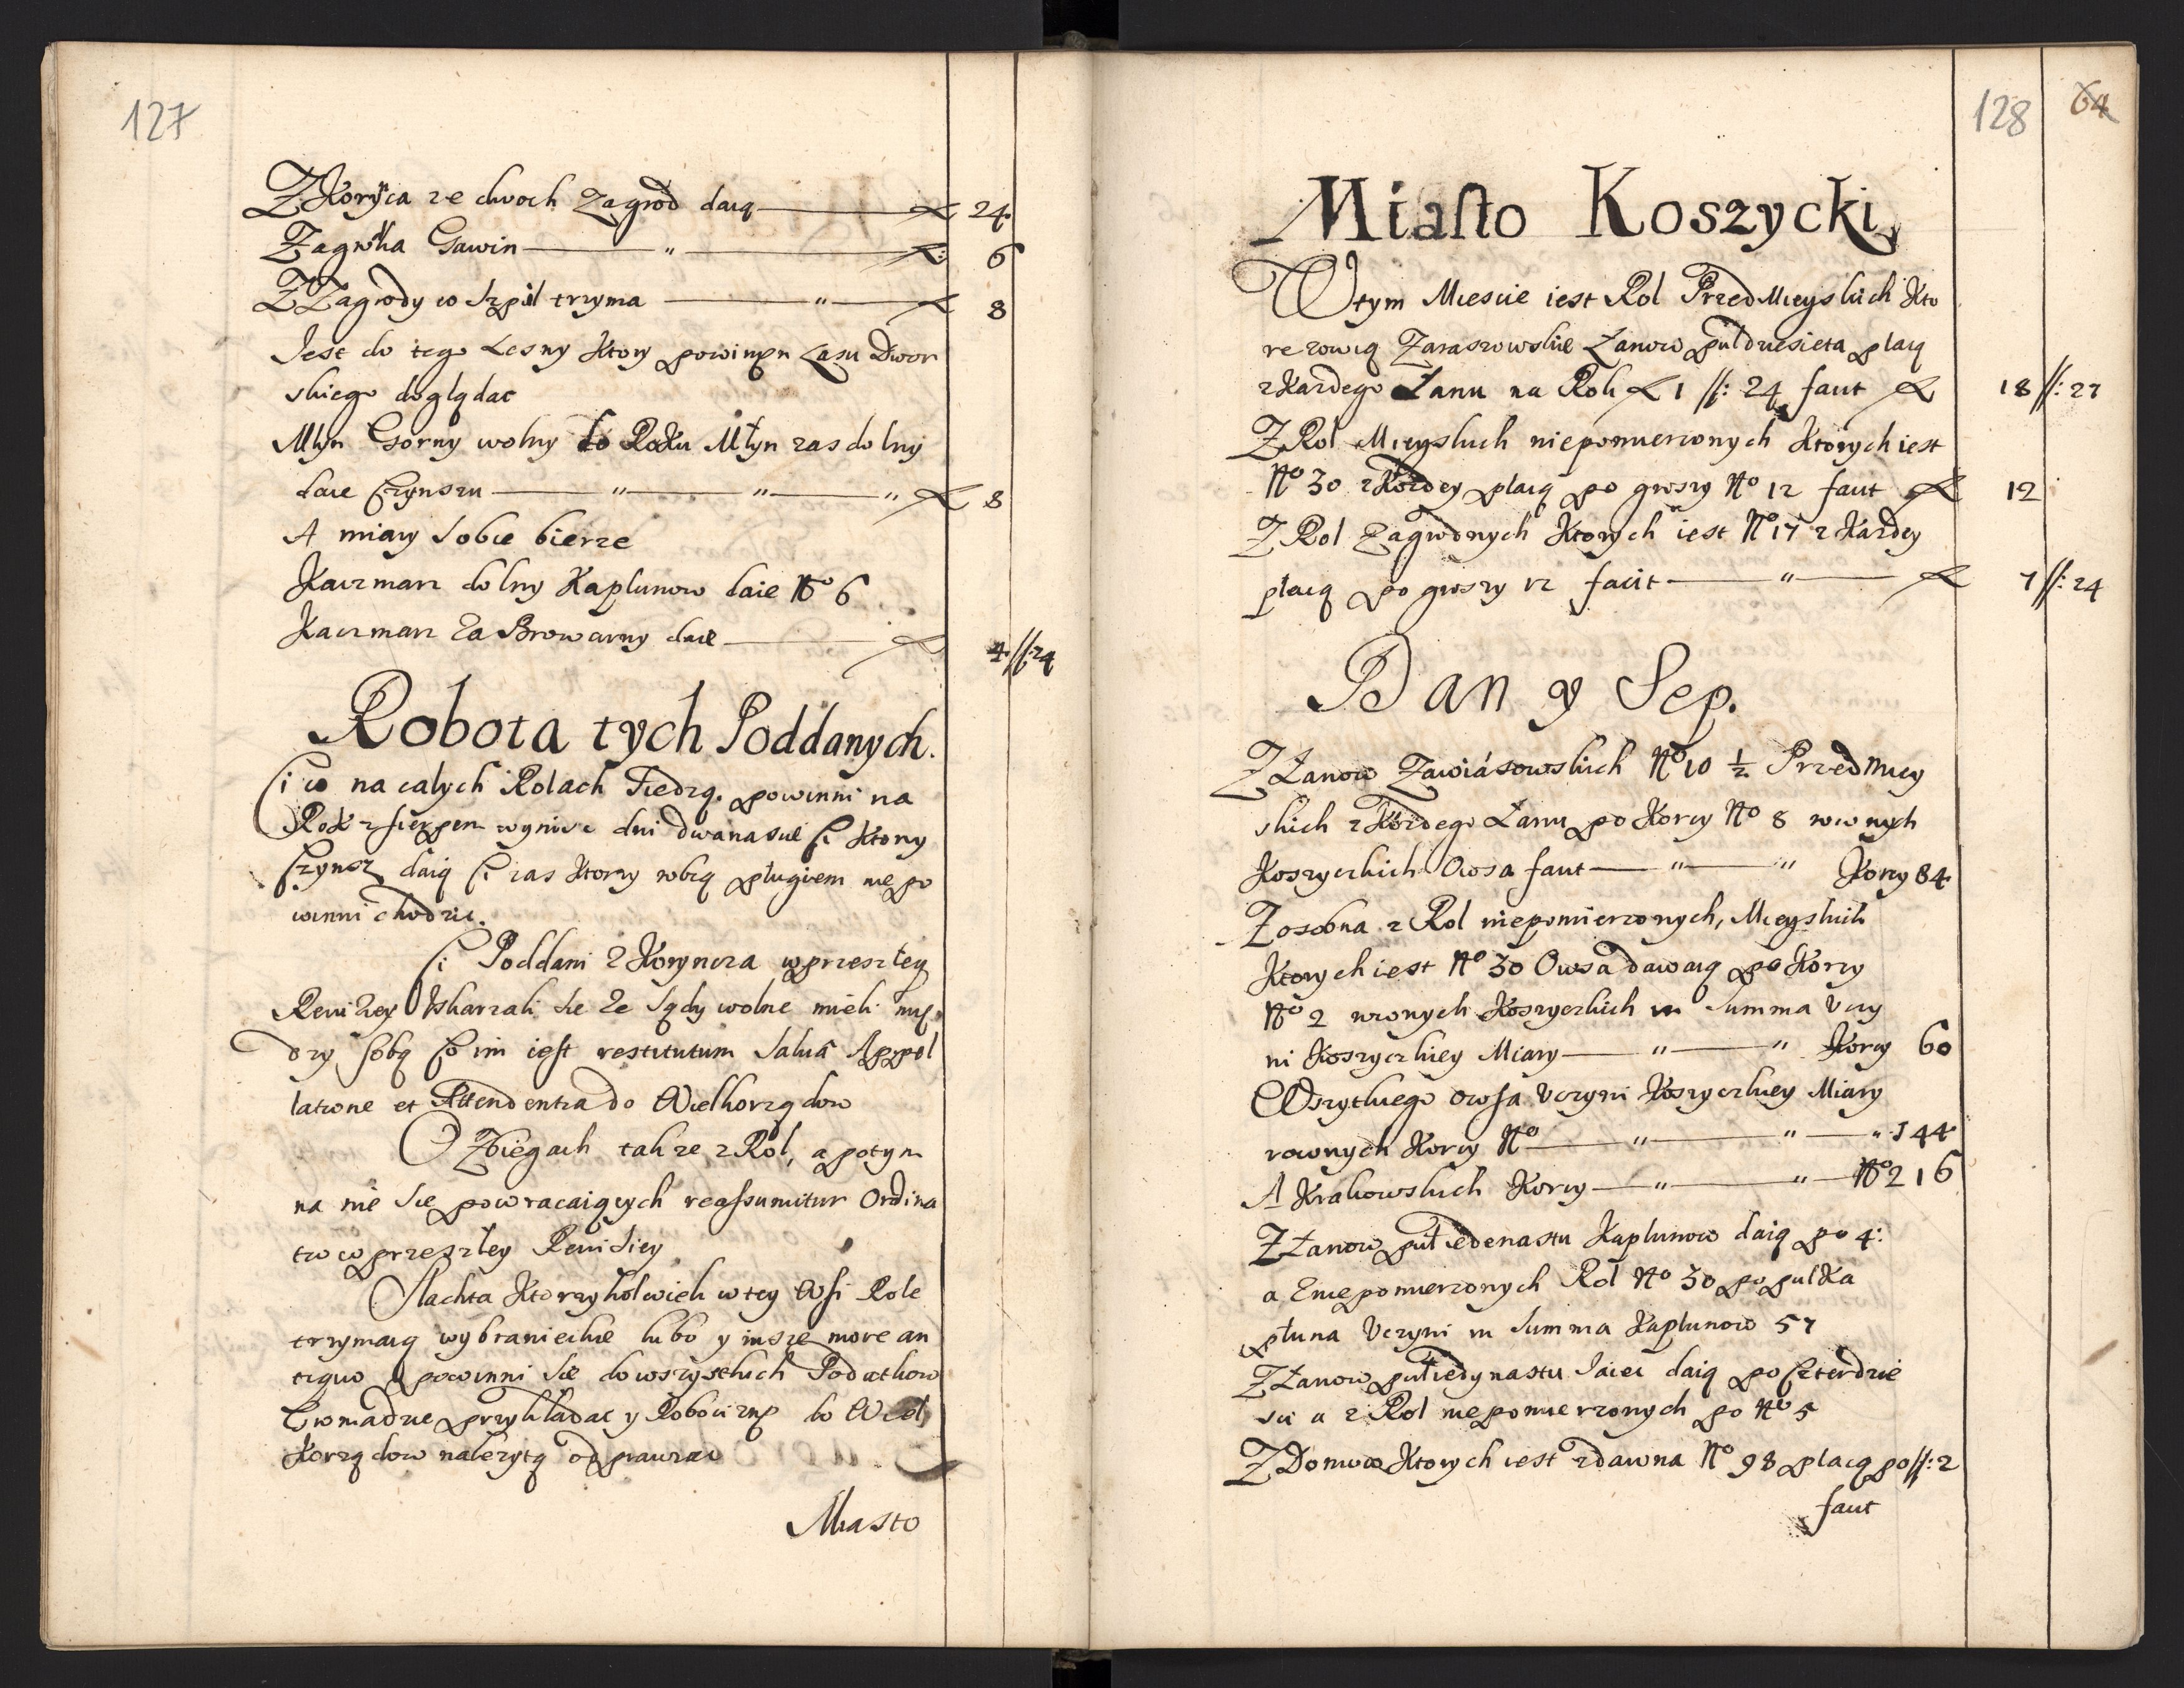 127
Z Koryca ze dwoch Zagrod daią ƒl 24
Zagrodka Gawin " ƒl: 6
Z Zagrody co Szpil trzyma " ƒl 8
Jest do tego Lesny Ktory powinęn Lasu Dwor
skiego doglądac
Mlyn Gorny wolny do Roku Młyn zas dolny
daie Czynszu " " " ƒl 8
A miary sobie bierze
Karzmarz dolny Kapłunow daie No 6
Karzmarz Za Browarny daie ƒl 4 //: 24
Robota tych Poddanych.
Ci co na calych Rolach Siedzą. powinni na
Rok z sierpem wyniść dni dwanascie Ci Ktorzy
Czynsz daią Ci zas Ktorzy robią pługiem nie po
winni chodzic.
Ci Poddani Z Korynicza w przeszłey
Rewizyey Uskarzali sie Ze Sądy wolne mieli mię
dzy sobą Co im iest restitutum Salua Appel
latione et Attendentia do Wielkorządow
O Zbiegach takze z Rol, a potym
na nie sie powracaiących reassumitur Ordina
tio w przeszłey Reuisiey
Slachta Ktorzykolwiek w tey Wsi Role
trzymaią wybranieckie lubo y insze more an
tiquo powinni sie do wszystkich Podatkow
Gromadzie przykładac y Robociznę do Wiel
Korządow nalezytą odprawiac
Miasto
128 64
Miasto Koszycki
W tym Miescie iest Rol Przedmieyskich Kto
re zowią Zaraszowskie Łanow pułdziesięta płacą
z Kazdego Łanu na Rok ƒl 1 //: 24 faut ƒl 18 //: 27
Z Rol Mieyskich niepomierzonych Ktorych iest
No 30 z Kozdey płacą po groszy No 12 faut ƒl 12
Z Rol Zagrodnych Ktorych iest No 17 z Kazdey
płacą po groszy 12 facit " ƒl 7 //: 24
Dan y Sep.
Z Łanow Zawiasowskich No 10 1/2 Przedmiey
skich z Kozdego Łanu po Korcy No 8 rownych
Koszyczkich Owsa faut " " Korcy 84
Z osobna z Rol niepomierzonych, Mieyskich
Ktorych iest No 30 Owsa dawaią po Korcy
No 2 wronych Koszyczkich in Summa Uczy
ni Koszyczkiey Miary " " Korcy 60
Wszytkiego owsa Uczyni Koszyczkiey Miary
rownych Korcy No " " " 144
A Krakowskich Korcy " " No 216
Z Łanow pułiedenastu Kapłunow daią po 4:
a Zniepomierzonych Rol No 30 po puł Ka
płuna Uczyni in Summa Kapłunow 57
Z Łanow pułiedynastu Jaiec daią po Czterdzie
sci a z Rol niepomierzonych po No 5
Z Domow Ktorych iest zdawna No 98 płacą po //: 2
faut